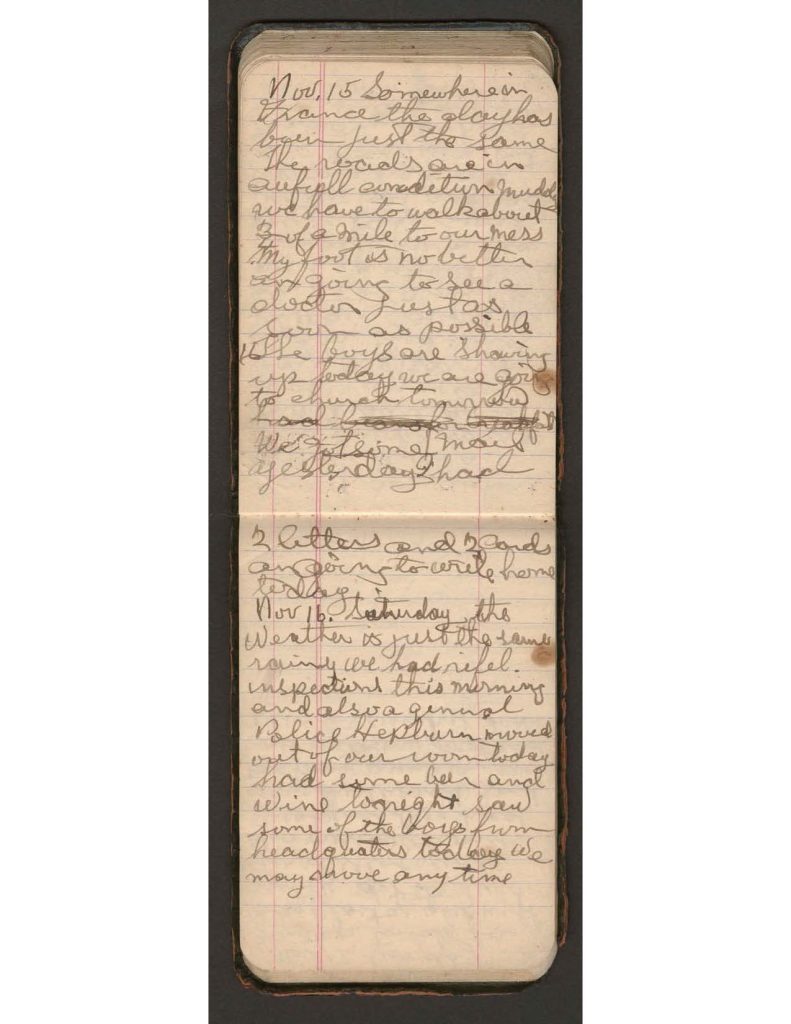 Nov. 15 Somewhere in
France the day has
been just the same
The roads are in
aufull condetion muddy
we have to walk about
3 of a mile to our mess
My foot is no better
am going to see a
doctor just as
soon as possible
16 The boys are showing
up today we are going
to church tomorrow
had
We got some mail
yesterday I had
2 letters and 2 cards
am going to write home
today
Nov 16. Saturday, the
Weather is just the same
rainy we had rifel.
inspections this morning
and also a genural
Police Hepburn moved
out of our room today
had some beer and
wine tonight saw
some of the boys from
headquaters today We
may move any time